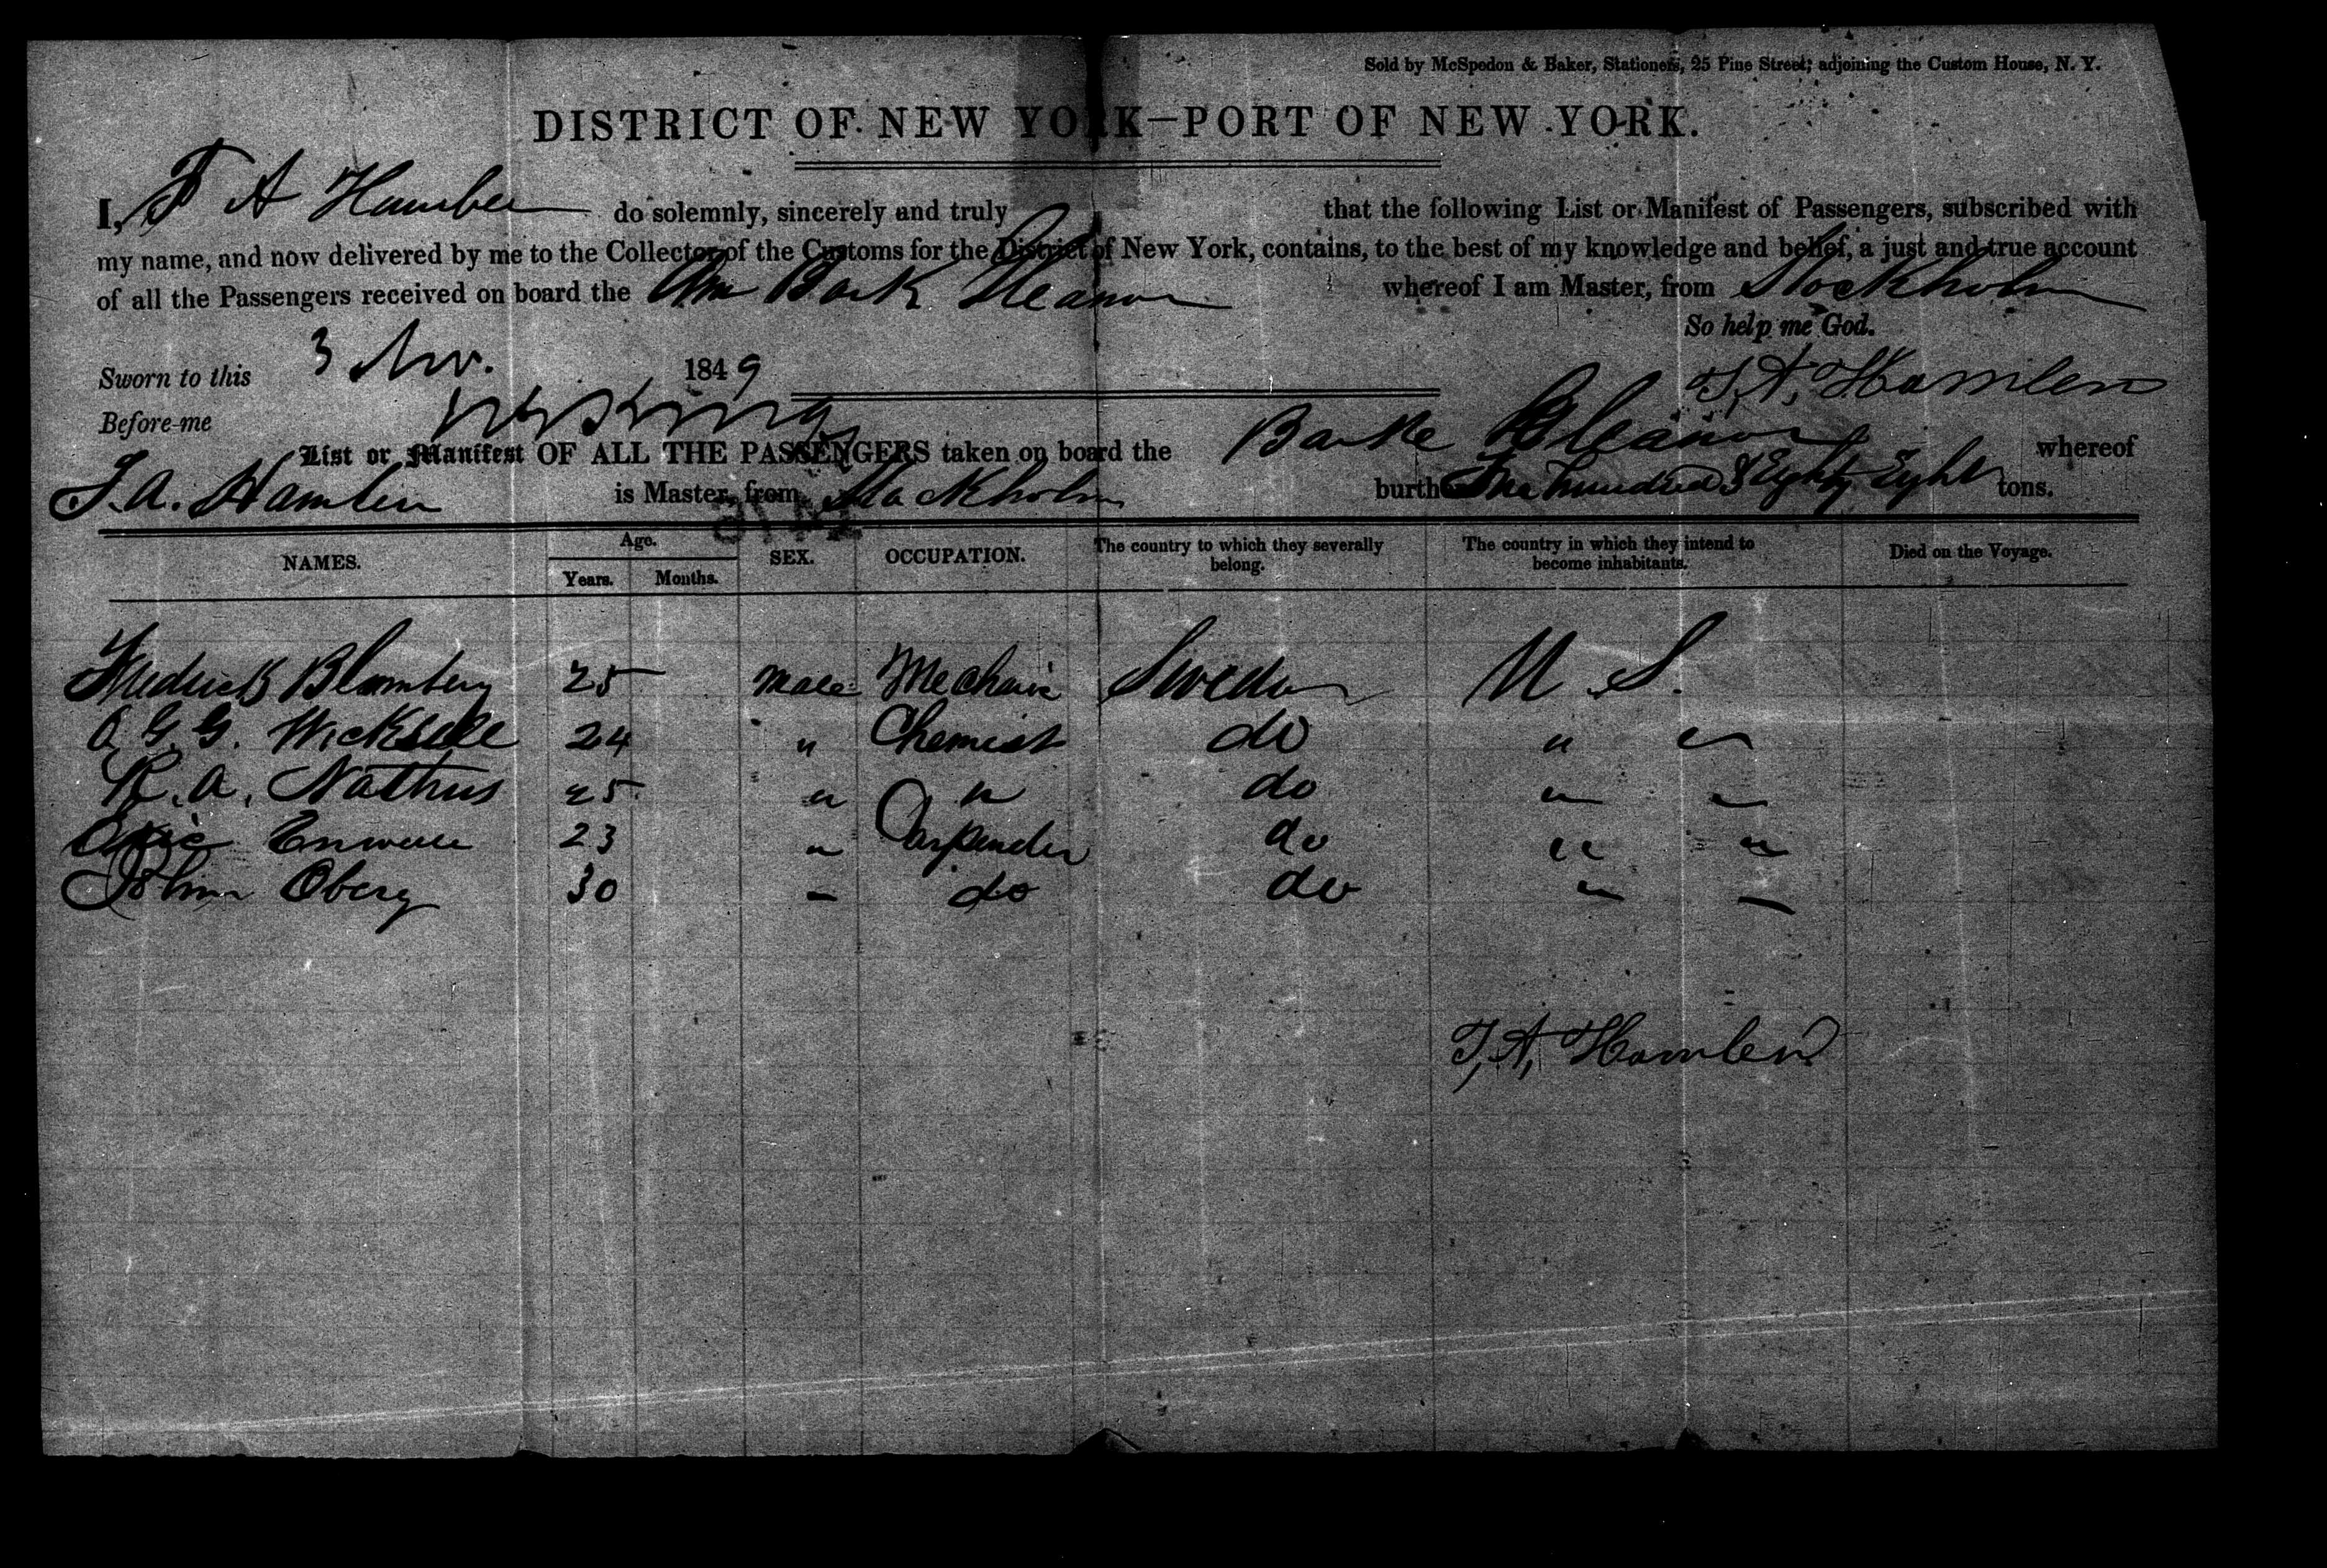 Sold by McSpedon & Baker, Stationers, 25 Pine Street; adjoining the Custom House, N. Y.
DISTRICT OF NEW YORK—PORT OF NEW YORK.
I, T A Hamlen do solemnly, sincerely and truly that the following List or Manifest of Passengers, subscribed with
my name, and now delivered by me to the Collector of the Customs for the District of New York, contains, to the best of my knowledge and belief, a just and true account
of all the Passengers received on board the Am Bark Gleanor whereof I am Master, from Stockholm
So help me God.
Sworn to this 3 Nov. 1849 T, A, Hamlen
Before me
List or Manifest OF ALL THE PASSENGERS taken on board the Barke Gleanor whereof
T. A. Hamlen is Master, from Stockholm burthen One hundred & Eighty Eight tons.
NAMES. Age. Years. Months. SEX. OCCUPATION. The country to which they severally belong. The country in which they intend to become inhabitants. Died on the Voyage.
Frederick Blomberg 25 Male Mechanic Sweden U. S.
G. G. Wicksell 24 " Chemist do " "
R. A. Nathus 25 " " do " "
Enwall 23 " Carpender do " "
Johan Oberg 30 " do do " "
T, A, Hamlen